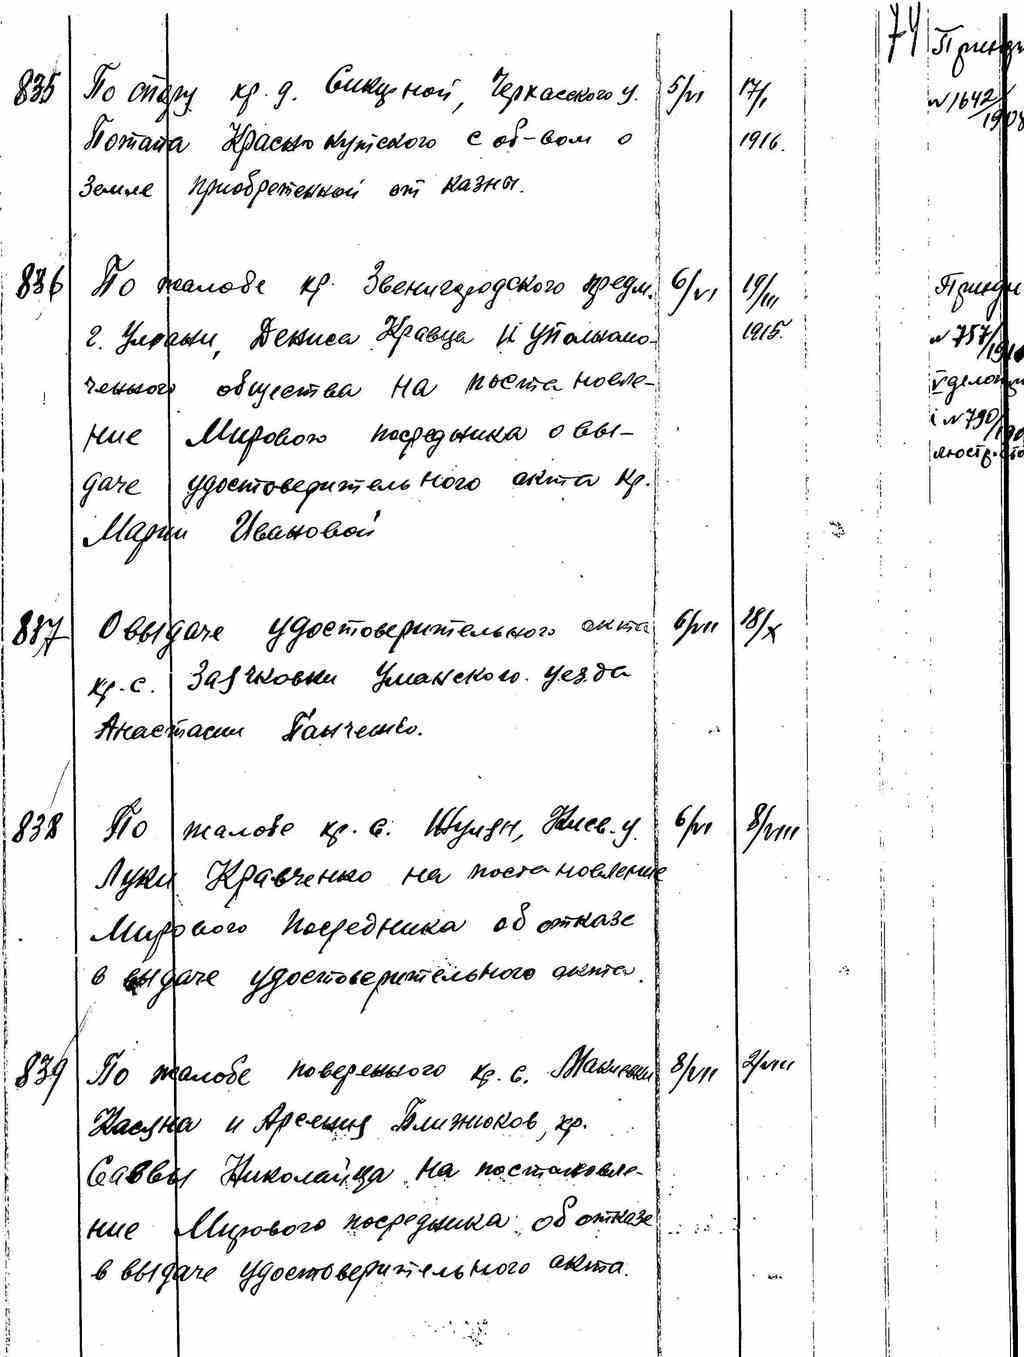 74
835 По спору кр. д. Сикирной, Черкасского у. 5/VI 17/I
Потапа Краснокутского с об-вом о 1916.
земле приобретенной от казны.
№ 1642/1908
836 По жалобе кр. Звенигородского предм. 6/VI 19/III
г. Умани, Дениса Кравца и уполномо- 1915.
ченного общества на постановле-
ние Мирового посредника о вы-
даче удостоверительного акта кр.
Марии Ивановой
№ 757/
№ 790/
837 О выдаче удостоверительного акта 6/VII 28/X
кр. с. Заячковки Уманского уезда
Анастасии Панченко.
838 По жалобе кр. с. Шулян, Киев. у. 6/VI 8/VIII
Луки Кравченко на постановление
Мирового Посредника об отказе
в выдаче удостоверительного акта.
839 По жалобе поверенного кр. с. Макиевки 8/VII 2/VIII
Касяна и Арсения Ближноков, кр.
Саввы Николайца на постановле-
ние Мирового посредника об отказе
в выдаче удостоверительного акта.